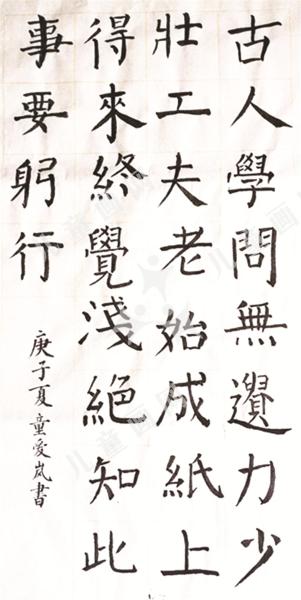 古人學問無遺力少
壯工夫老始成紙上
得來終覺淺絕知此
事要躬行
庚子夏童愛岚書